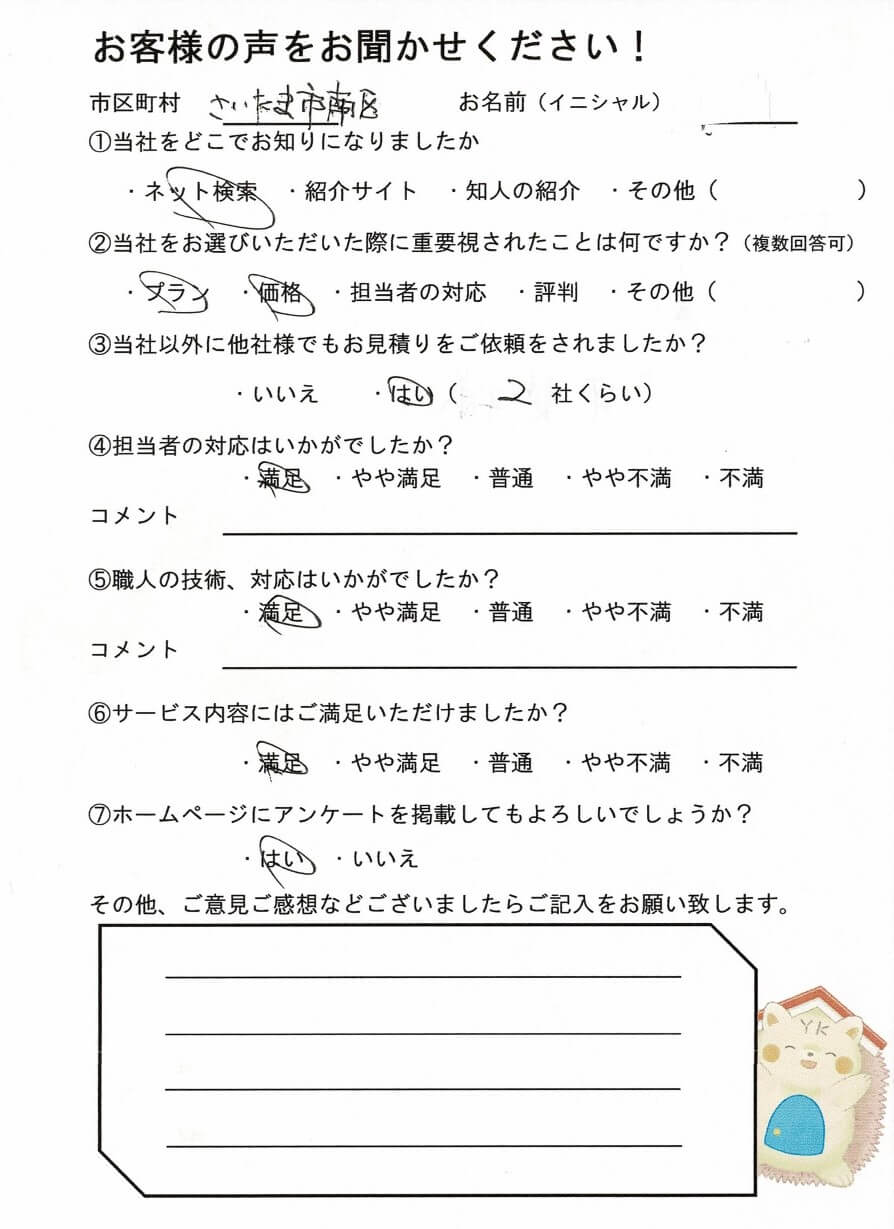 お客様の声をお聞かせください！
市区町村 さいたま市南区 お名前（イニシャル）
①当社をどこでお知りになりましたか
・ネット検索 ・紹介サイト ・知人の紹介 ・その他（ ）
②当社をお選びいただいた際に重要視されたことは何ですか？（複数回答可）
・プラン ・価格 ・担当者の対応 ・評判 ・その他（ ）
③当社以外に他社様でもお見積りをご依頼をされましたか？
・いいえ ・はい（ 2 社くらい）
④担当者の対応はいかがでしたか？
・満足 ・やや満足 ・普通 ・やや不満 ・不満
コメント
⑤職人の技術、対応はいかがでしたか？
・満足 ・やや満足 ・普通 ・やや不満 ・不満
コメント
⑥サービス内容にはご満足いただけましたか？
・満足 ・やや満足 ・普通 ・やや不満 ・不満
⑦ホームページにアンケートを掲載してもよろしいでしょうか？
・はい ・いいえ
その他、ご意見ご感想などございましたらご記入をお願い致します。
YK